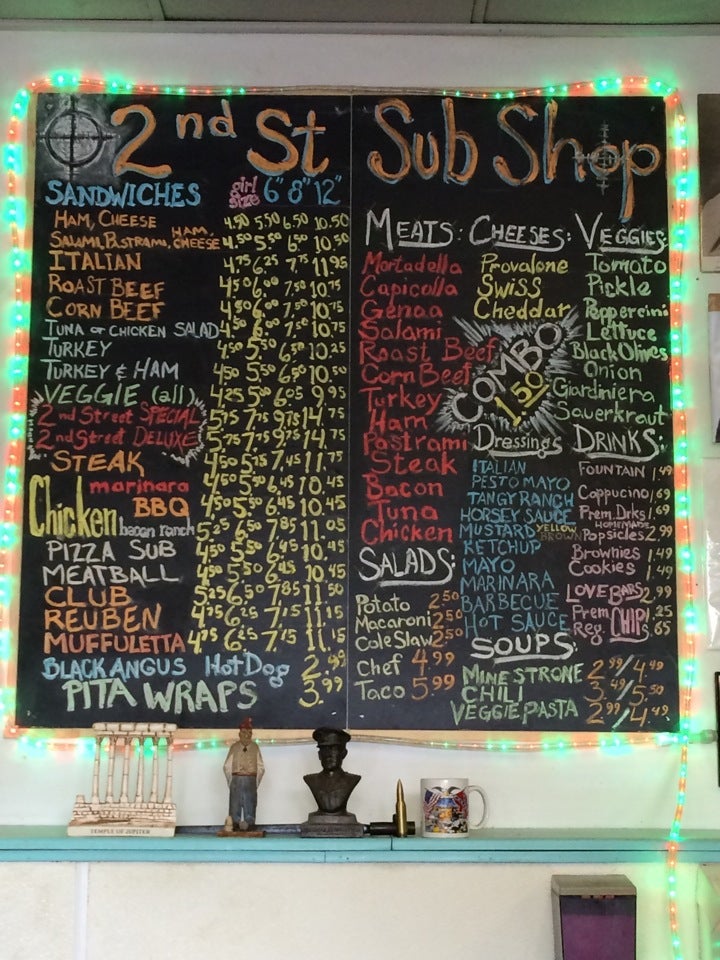 2nd St Sub Shop
SANDWICHES girl size 6" 8" 12"
HAM, CHEESE 4.50 5.50 6.50 10.50
SALAMI, PASTRAMI, HAM, CHEESE 4.50 5.50 6.50 10.50
ITALIAN 4.75 6.25 7.75 11.95
ROAST BEEF 4.50 6.00 7.50 10.75
CORN BEEF 4.50 6.00 7.50 10.75
TUNA or CHICKEN SALAD 4.50 6.00 7.50 10.75
TURKEY 4.50 5.50 6.50 10.25
TURKEY & HAM 4.50 5.50 6.50 10.50
VEGGIE (all) 4.25 5.00 6.05 9.95
2nd Street SPECIAL 5.75 7.75 9.75 14.75
2nd Street DELUXE 5.75 7.75 9.75 14.75
STEAK 4.50 5.75 7.45 11.75
Chicken
marinara 4.50 5.50 6.45 10.45
BBQ 4.50 5.50 6.45 10.45
bacon ranch 5.25 6.50 7.85 11.05
PIZZA SUB 4.50 5.50 6.45 10.45
MEATBALL 4.50 5.50 6.45 10.45
CLUB 5.25 6.50 7.85 11.50
REUBEN 4.75 6.25 7.15 11.15
MUFFULETTA 4.75 6.25 7.15 11.15
BLACK ANGUS Hot Dog 2.49
PITA WRAPS 3.99
MEATS:
Mortadella
Capicolla
Genoa
Salami
Roast Beef
Corn Beef
Turkey
Ham
Pastrami
Steak
Bacon
Tuna
Chicken
SALADS:
Potato 2.50
Macaroni 2.50
Cole Slaw 2.50
Chef 4.99
Taco 5.99
CHEESES:
Provalone
Swiss
Cheddar
COMBO
1.50
Dressings
ITALIAN
PESTO MAYO
TANGY RANCH
HORSEY SAUCE
MUSTARD YELLOW BROWN
KETCHUP
MAYO
MARINARA
BARBECUE
HOT SAUCE
VEGGIES:
Tomato
Pickle
Peppercini
Lettuce
Black Olives
Onion
Giardiniera
Sauerkraut
DRINKS:
FOUNTAIN 1.49
Cappucino 1.69
Prem. Drks. 1.69
HOMEMADE
Popsicles 2.99
Brownies 1.49
Cookies 1.49
LOVE BARS 2.99
Prem. CHIP! 1.25
Reg. .65
SOUPS:
MINESTRONE 2.99/4.49
CHILI 3.49/5.50
VEGGIE PASTA 2.99/4.49
TEMPLE OF JUPITER